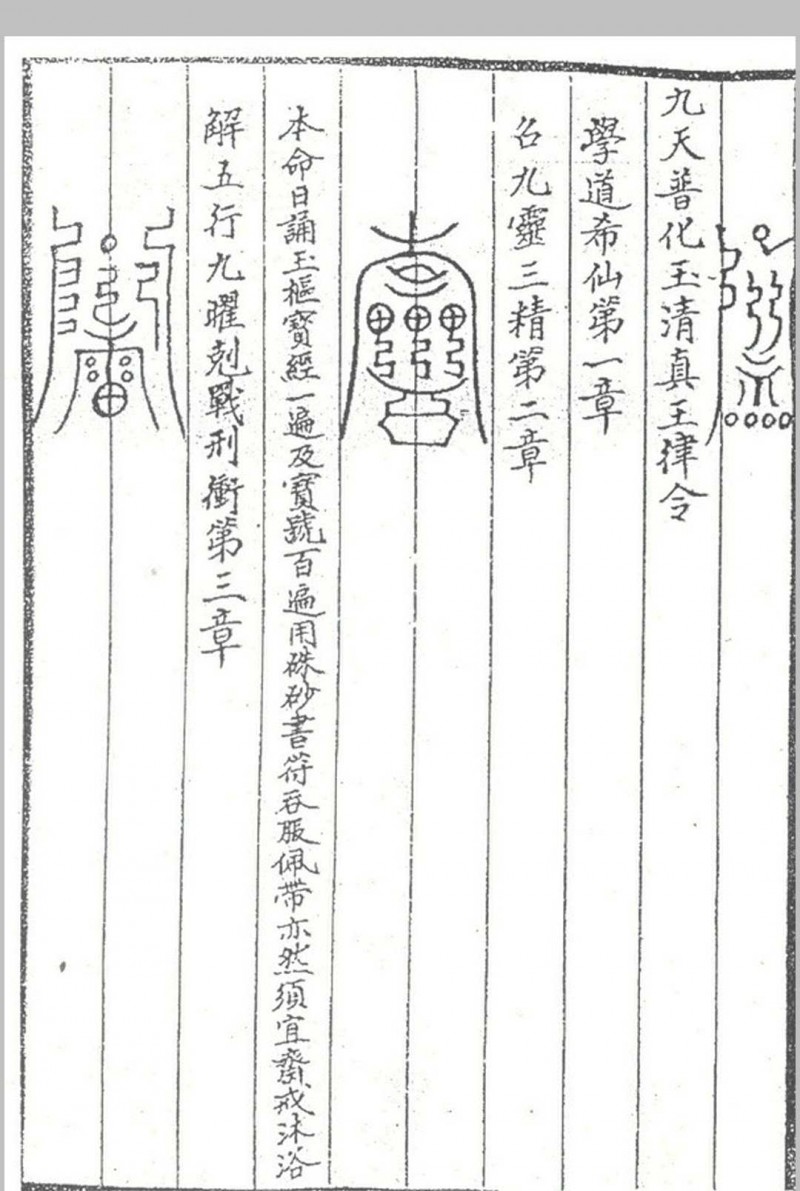 九天普化玉清真王律令
學道希仙第一章
召九靈三精第二章
本命日誦玉樞寶經一遍及寶號百遍用硃砂書符吞服佩帶亦然須宜齋戒沐浴
解五行九曜剋戰刑衝第三章